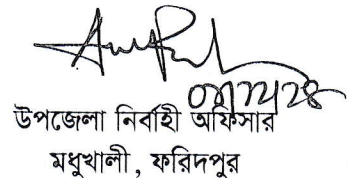 উপজেলা নির্বাহী অফিসার
মধুখালী, ফরিদপুর